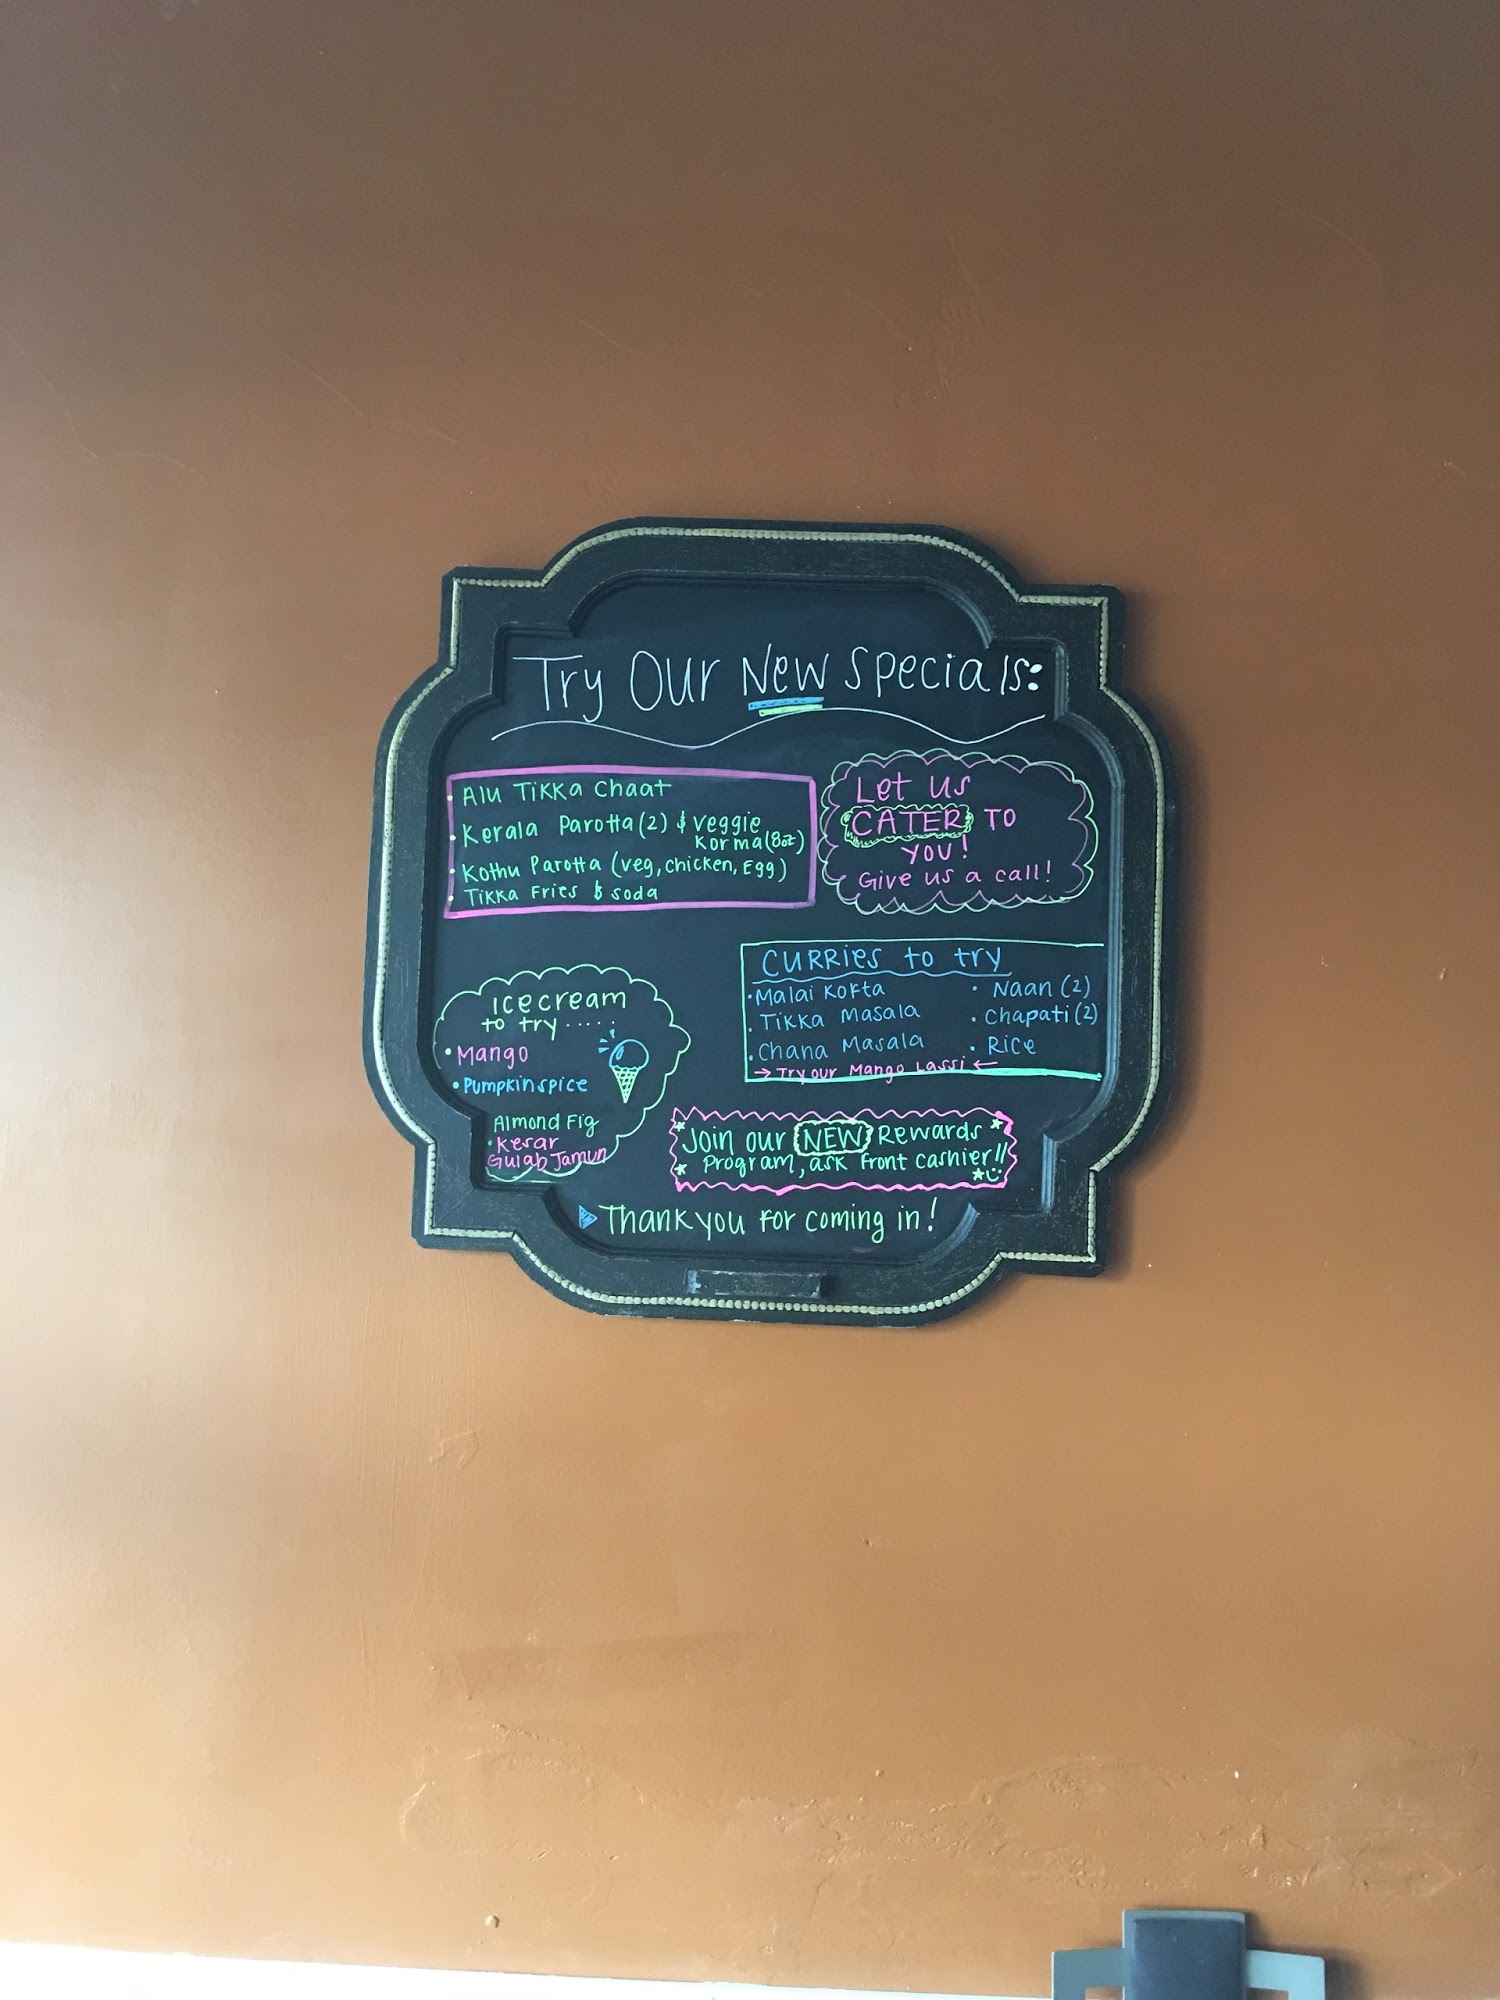 Try Our New Specials:
• Alu Tikka Chaat
• Kerala Parotta (2) & veggie
Korma (8oz)
• Kothu Parotta (veg, chicken, Egg)
• Tikka Fries & soda
Let us
CATER TO
YOU!
Give us a call!
CURRIES to try
• Malai Kofta
• Tikka Masala
• Chana Masala
• Naan (2)
• Chapati (2)
• Rice
→ Try our Mango Lassi ←
Icecream
to try.....
• Mango
• Pumpkin spice
Almond Fig
• Kesar
Gulab Jamun
Join our NEW Rewards
Program, ask front cashier!!
Thank you for coming in!